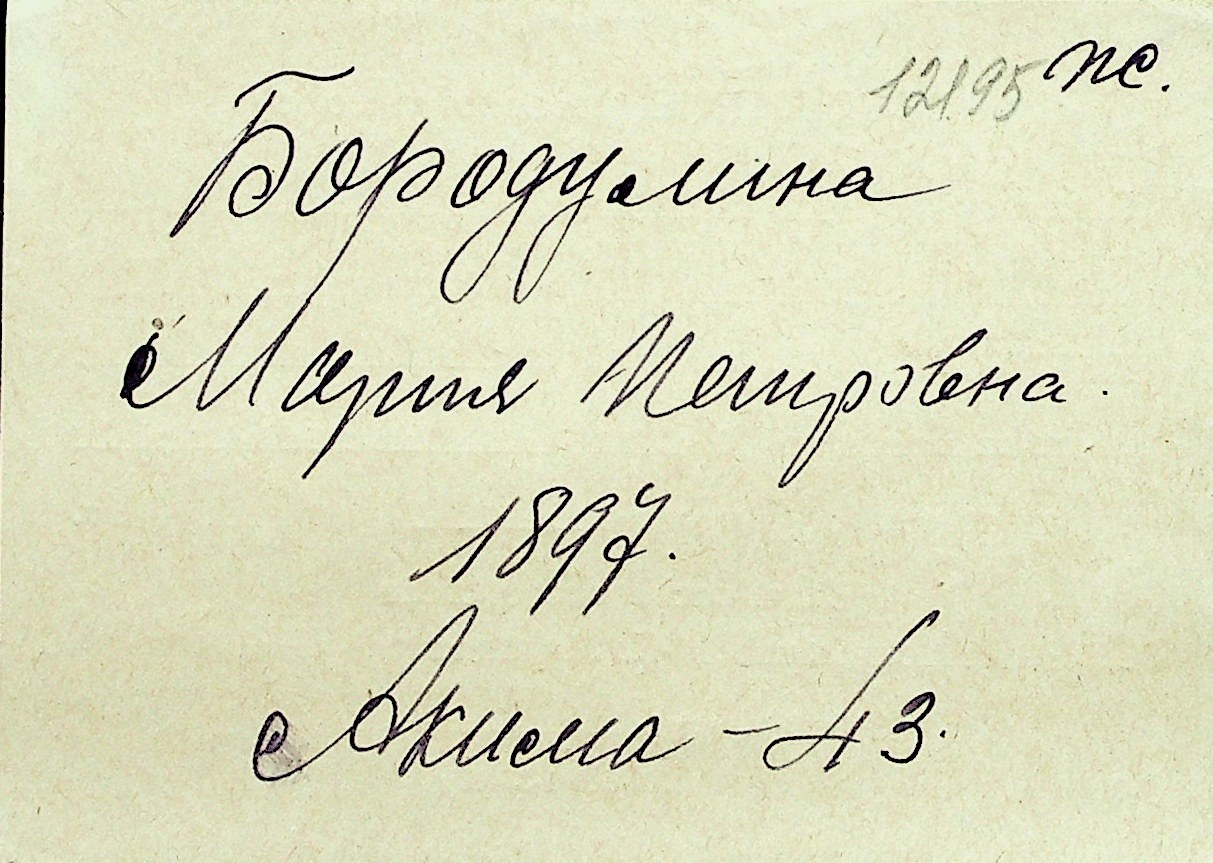 12195 пс.
Бородулина
Мария Петровна.
1897.
Акима - 43.